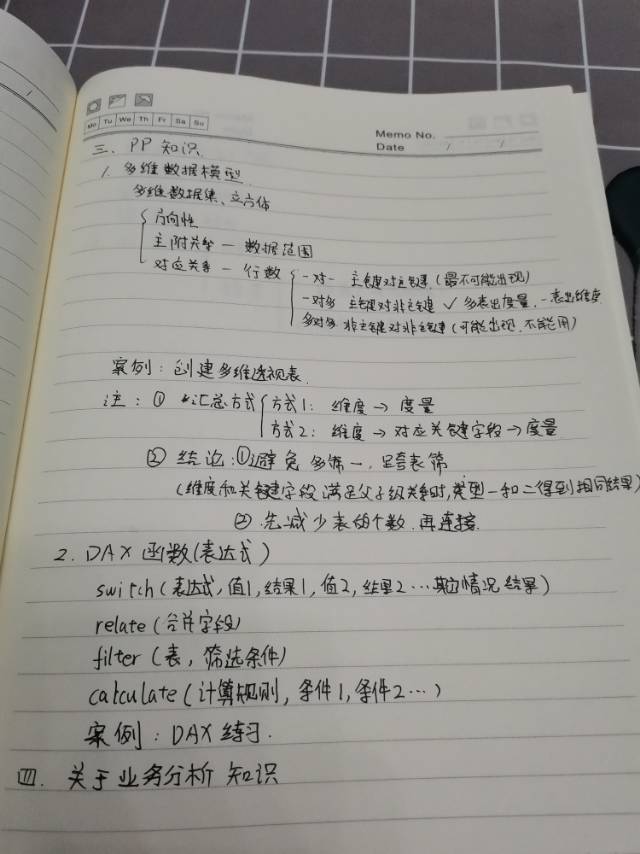 Mo Tu We Th Fr Sa Su
Memo No.
Date / /
三、PP 知识
1. 多维数据模型
多维数据集、立方体
方向性
主附关系 — 数据范围
对应关系 — 行数
一对一 主键对主键 (最不可能出现)
一对多 主键对非主键 ✓ 多表出度量,一表出维度
多对多 非主键对非主键 (可能出现,不能用)
案例: 创建多维透视表.
注: ① 汇总方式
方式1: 维度 → 度量
方式2: 维度 → 对应关键字段 → 度量
② 结论: ①避免 多筛一, 跨表筛
(维度和关键字段 满足父子级关系时, 类型一和二得到相同结果)
② 先减少表的个数, 再连接.
2. DAX 函数(表达式)
switch (表达式, 值1, 结果1, 值2, 结果2 … 其它情况 结果)
relate (合并字段)
filter (表, 筛选条件)
calculate (计算规则, 条件1, 条件2 …)
案例: DAX 练习.
四. 关于业务分析 知识